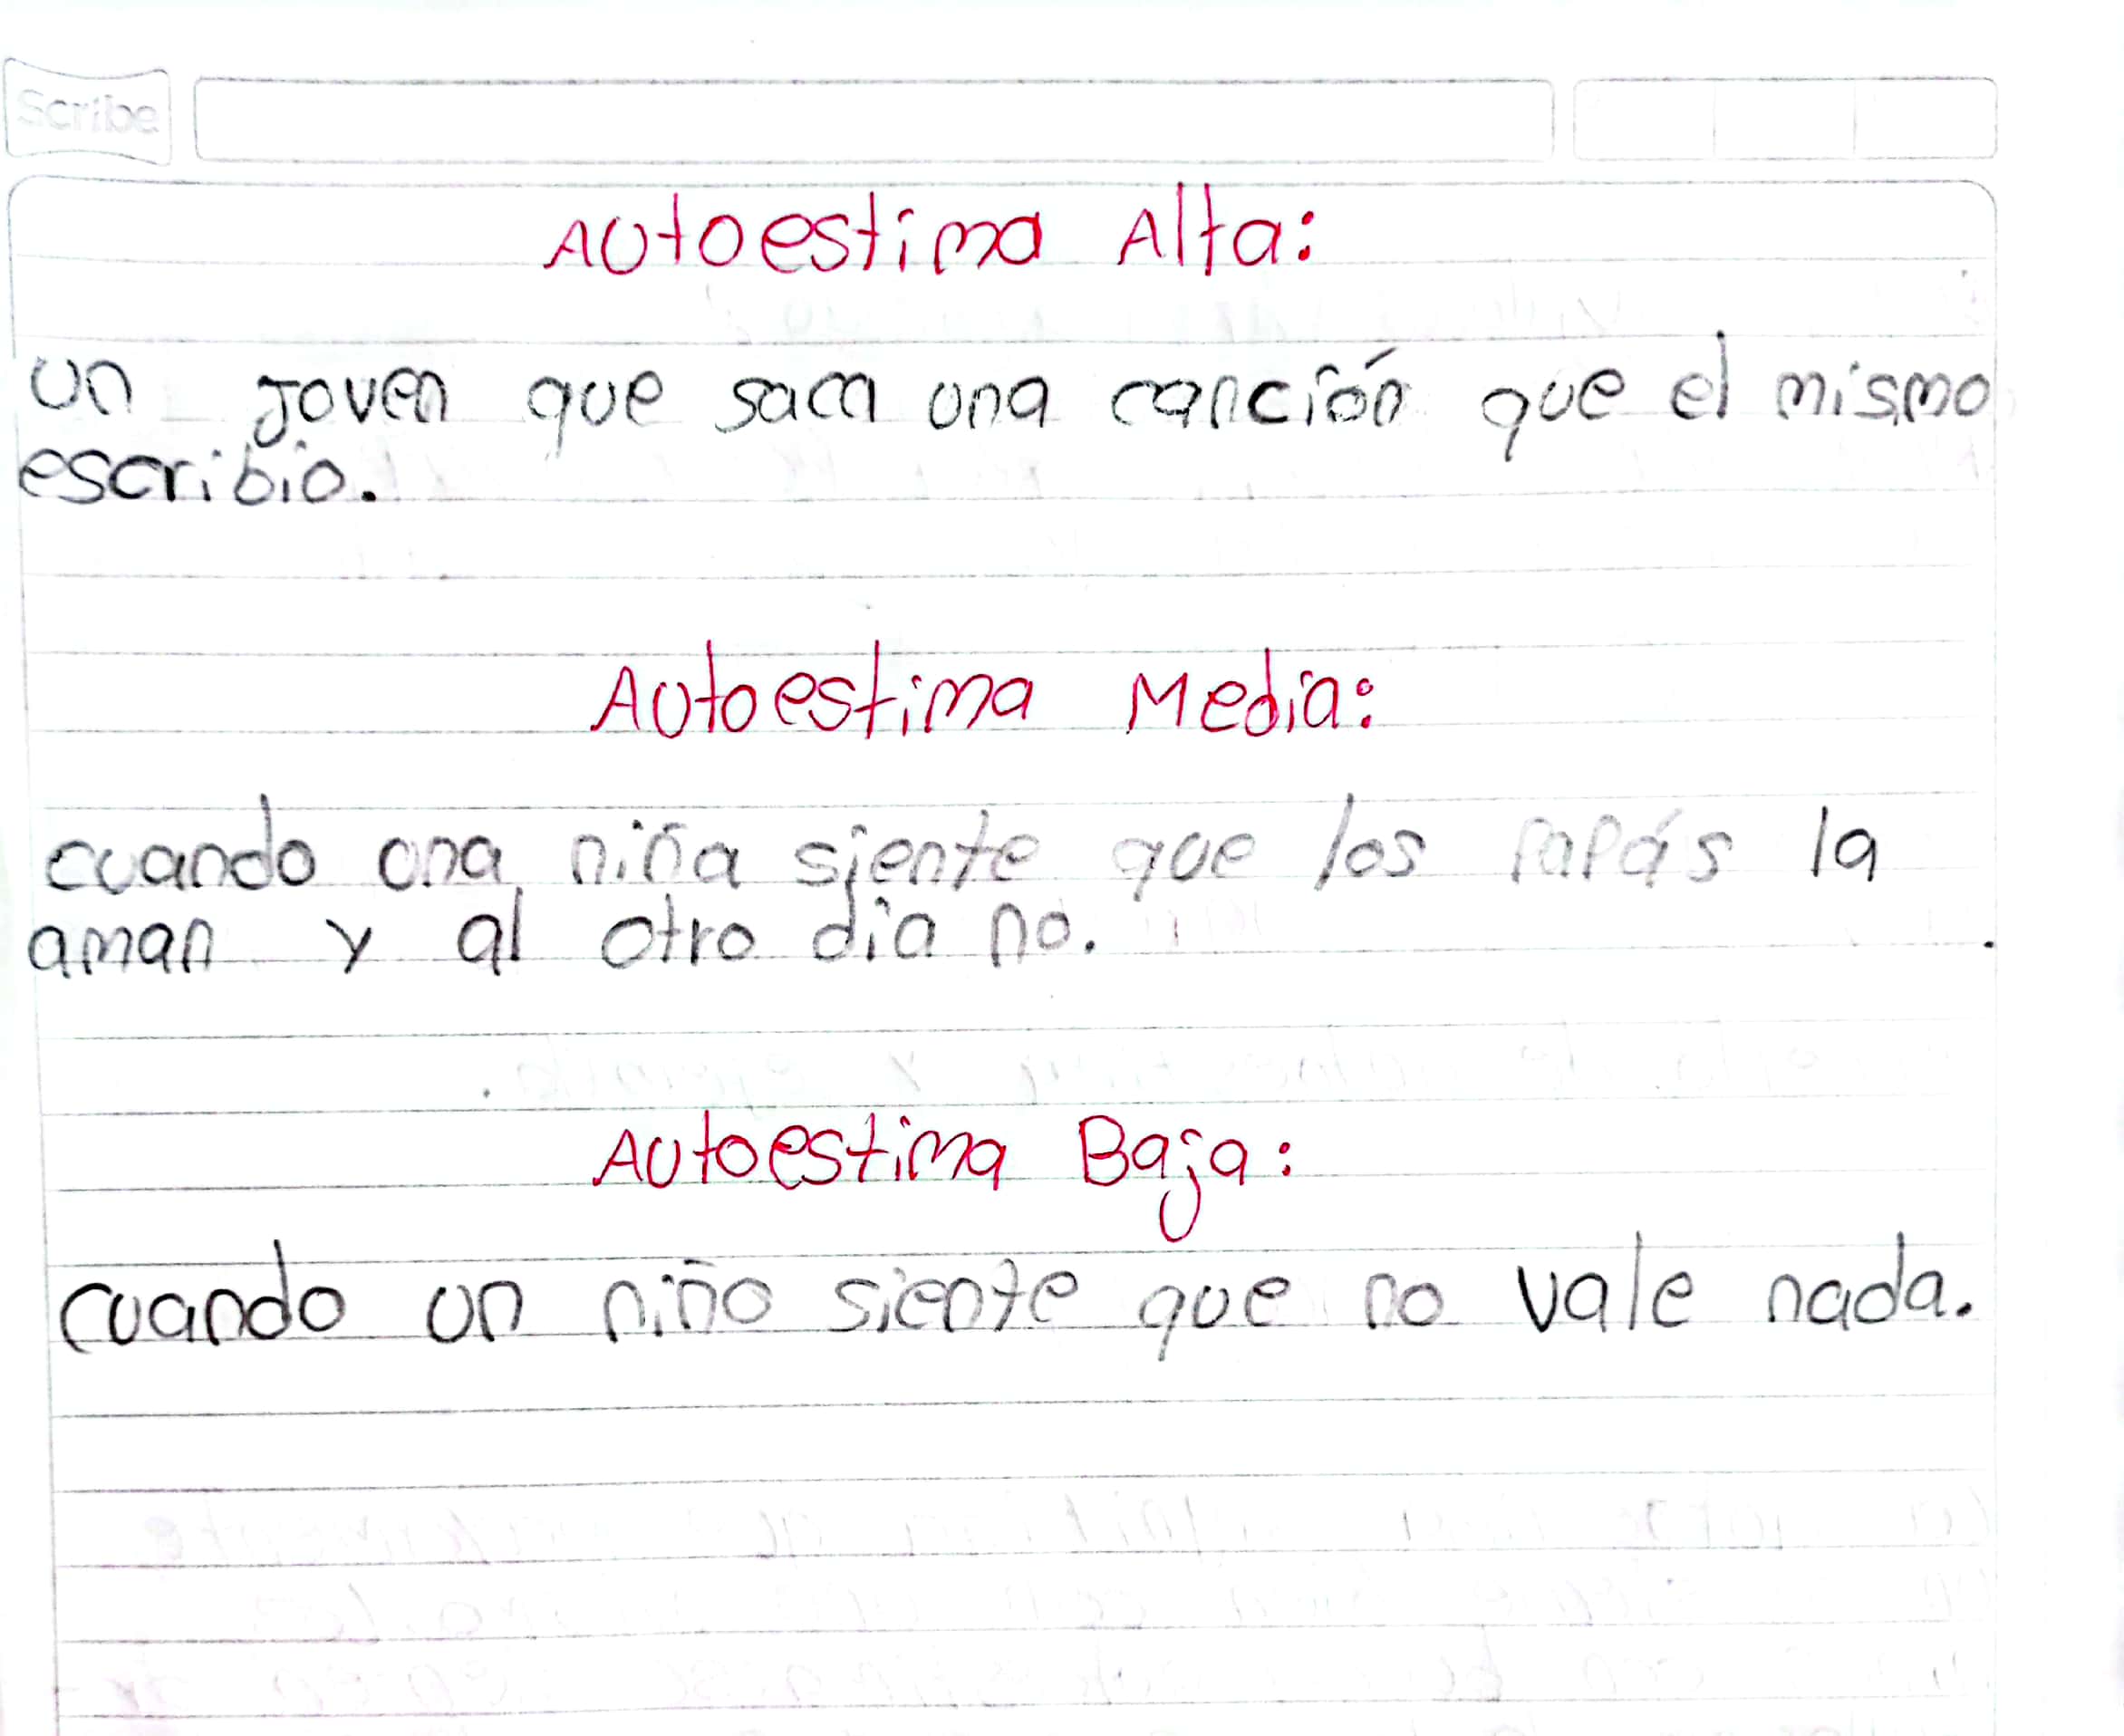 Scribe
Autoestima Alta:
un joven que saca una canción que el mismo
escribio.
Autoestima Media:
cuando una niña siente que los papás la
aman y al otro dia no.
Autoestima Baja:
cuando un niño siente que no vale nada.